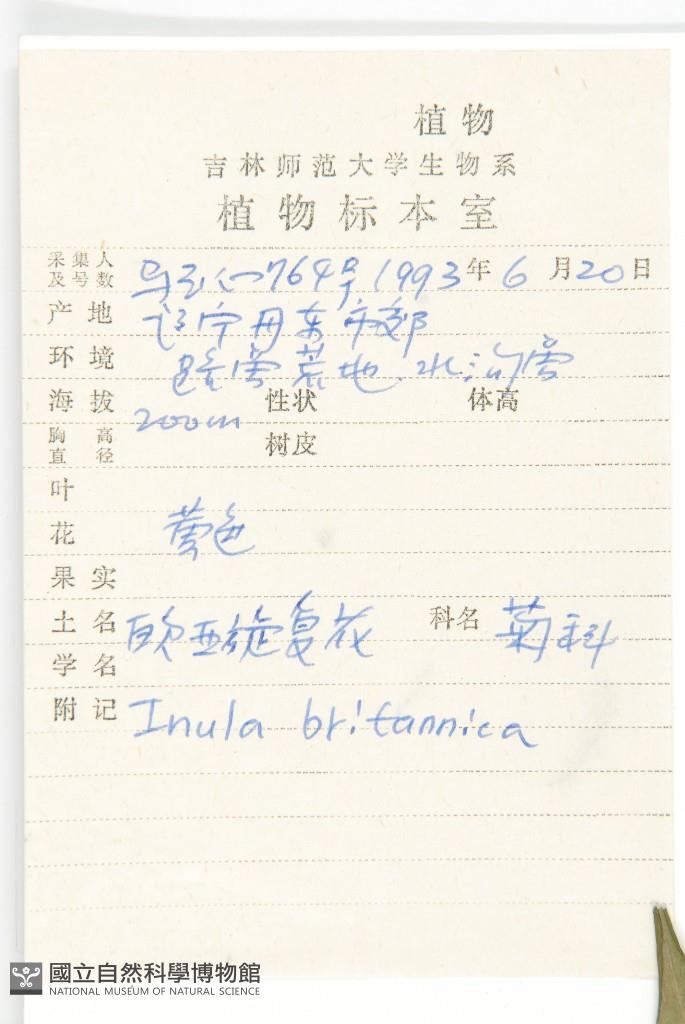 植物
吉林师范大学生物系
植物标本室
采集人
及号数 764号 1993年6月20日
产地 辽宁丹东市郊
环境 路旁荒地.水沟旁
海拔 200m 性状 体高
胸高
直径 树皮
叶
花 黄色
果实
土名 欧亚旋复花 科名 菊科
学名
附记 Inula britannica
國立自然科學博物館
NATIONAL MUSEUM OF NATURAL SCIENCE